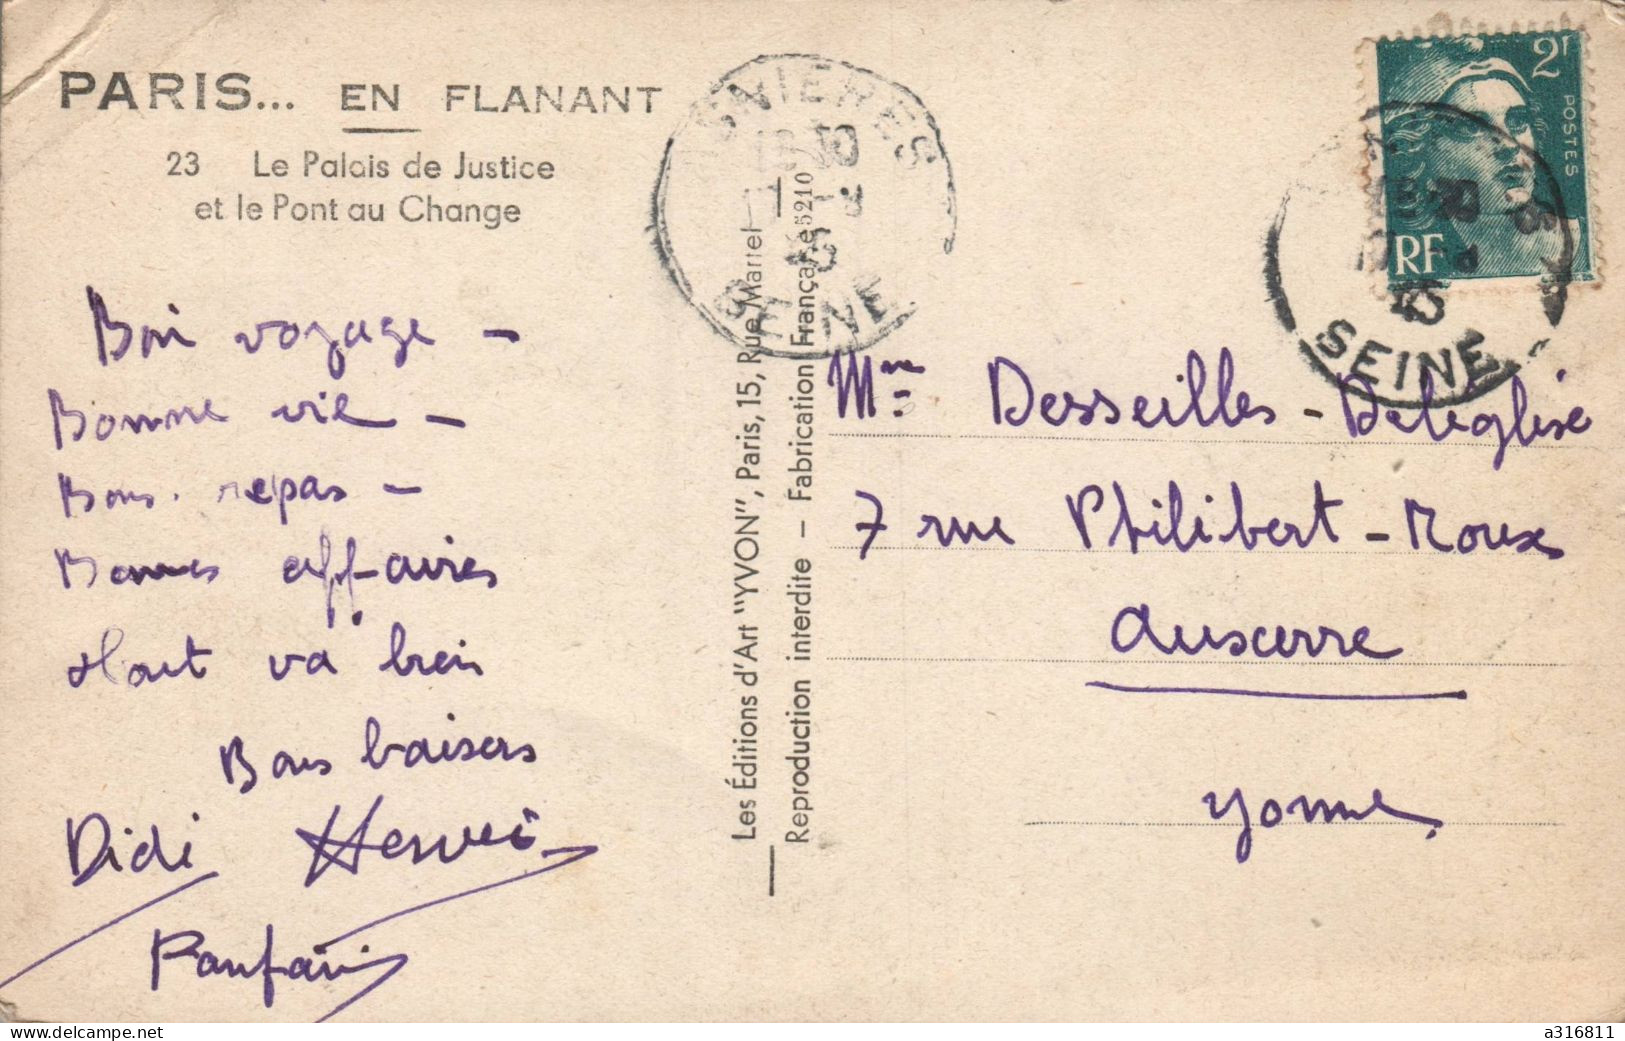 PARIS... EN FLANANT
23 Le Palais de Justice
et le Pont au Change
Bon voyage -
Bonne vie -
Bons repas -
Bonnes affaires
tout va bien
Bons baisers
Didi Hervé
Fanfan
Les Éditions d'Art "YVON", Paris, 15, Rue Martel
Reproduction interdite - Fabrication Française 5210
ASNIERES
SEINE
2f
POSTES
RF
45
SEINE
Mme Desseilles-Deléglise
7 rue Philibert-Roux
Auxerre
Yonne
www.delcampe.net
a316811